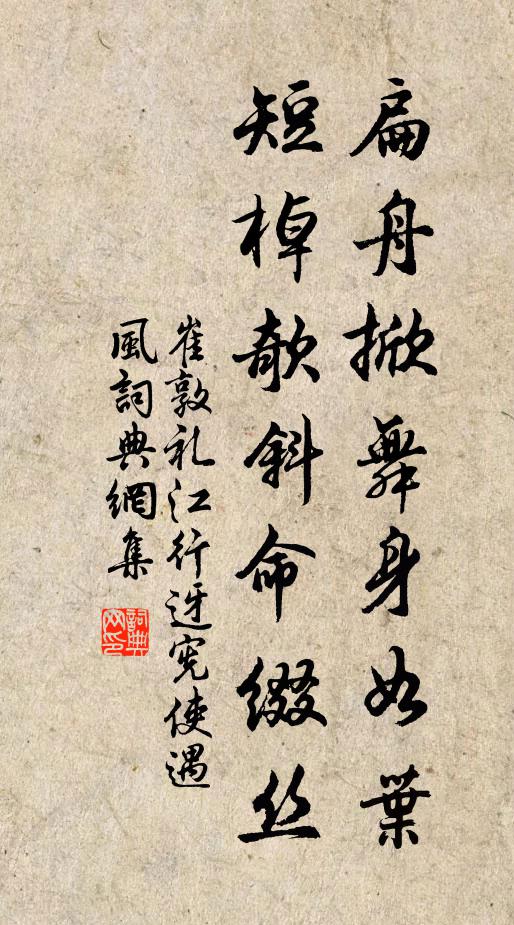 扁舟掀舞身如葉
短棹欹斜命綴丝
崔敦礼江行迓宪使遇
風詞典網集
詞典网印